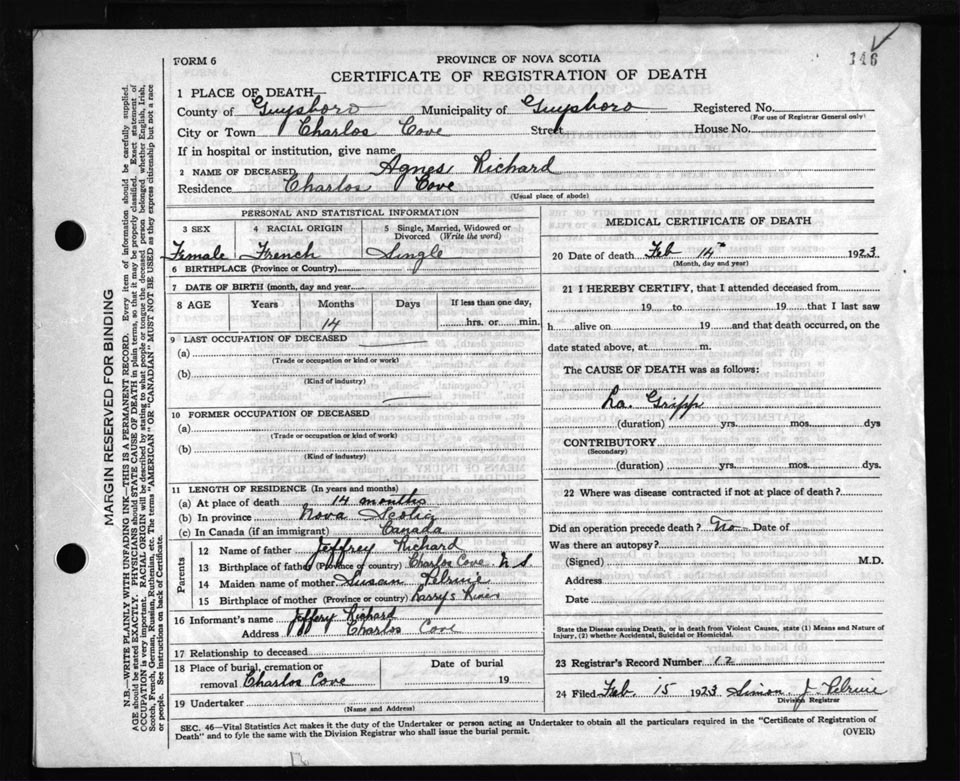 FORM 6
PROVINCE OF NOVA SCOTIA
146
CERTIFICATE OF REGISTRATION OF DEATH
1 PLACE OF DEATH—
County of Guysboro Municipality of Guysboro Registered No.
(For use of Registrar General only)
City or Town Charlos Cove Street House No.
If in hospital or institution, give name
2 NAME OF DECEASED Agnes Richard
Residence Charlos Cove
(Usual place of abode)
PERSONAL AND STATISTICAL INFORMATION
3 SEX 4 RACIAL ORIGIN 5 Single, Married, Widowed or Divorced (Write the word)
Female French Single
6 BIRTHPLACE (Province or Country)
7 DATE OF BIRTH (month, day and year)
8 AGE Years Months Days If less than one day,
14 hrs. or min.
9 LAST OCCUPATION OF DECEASED
(a)
(Trade or occupation or kind or work)
(b)
(Kind of industry)
10 FORMER OCCUPATION OF DECEASED
(a)
(Trade or occupation or kind of work)
(b)
(Kind of industry)
11 LENGTH OF RESIDENCE (In years and months)
(a) At place of death 14 months
(b) In province Nova Scotia
(c) In Canada (if an immigrant) Canada
Parents
12 Name of father Jeffrey Richard
13 Birthplace of father (Province or country) Charlos Cove N S.
14 Maiden name of mother Susan Pelrine
15 Birthplace of mother (Province or country) Larrys River
16 Informant's name Jeffery Richard
Address Charlos Cove
17 Relationship to deceased
18 Place of burial, cremation or removal Charlos Cove Date of burial 19
19 Undertaker
(Name and Address)
MEDICAL CERTIFICATE OF DEATH
20 Date of death Feb 14th 1923
(Month, day and year)
21 I HEREBY CERTIFY, that I attended deceased from
19 to 19 that I last saw
h alive on 19 and that death occurred, on the
date stated above, at m.
The CAUSE OF DEATH was as follows:
La Gripp
(duration) yrs. mos. dys
CONTRIBUTORY
(Secondary)
(duration) yrs. mos. dys.
22 Where was disease contracted if not at place of death?
Did an operation precede death? No Date of
Was there an autopsy?
(Signed) M.D.
Address
Date
State the Disease causing Death, or in death from Violent Causes, state (1) Means and Nature of
Injury, (2) whether Accidental, Suicidal or Homicidal.
23 Registrar's Record Number 12
24 Filed Feb 15 1923 Simon J Pelrine
Division Registrar
SEC. 46—Vital Statistics Act makes it the duty of the Undertaker or person acting as Undertaker to obtain all the particulars required in the "Certificate of Registration of
Death" and to fyle the same with the Division Registrar who shall issue the burial permit.
(OVER)
MARGIN RESERVED FOR BINDING
N.B.—WRITE PLAINLY WITH UNFADING INK—THIS IS A PERMANENT RECORD. Every item of information should be carefully supplied.
AGE should be stated EXACTLY. PHYSICIANS should STATE CAUSE OF DEATH in plain terms, so that it may be properly classified. Exact statement of
OCCUPATION is very important. RACIAL ORIGIN will be described by stating to what people or tongue the deceased person belonged, whether English, Irish,
Scotch, French, German, Russian, Ruthenian, etc. The terms "AMERICAN" OR "CANADIAN" MUST NOT BE USED as they express citizenship but not a race
or people. See instructions on back of Certificate.